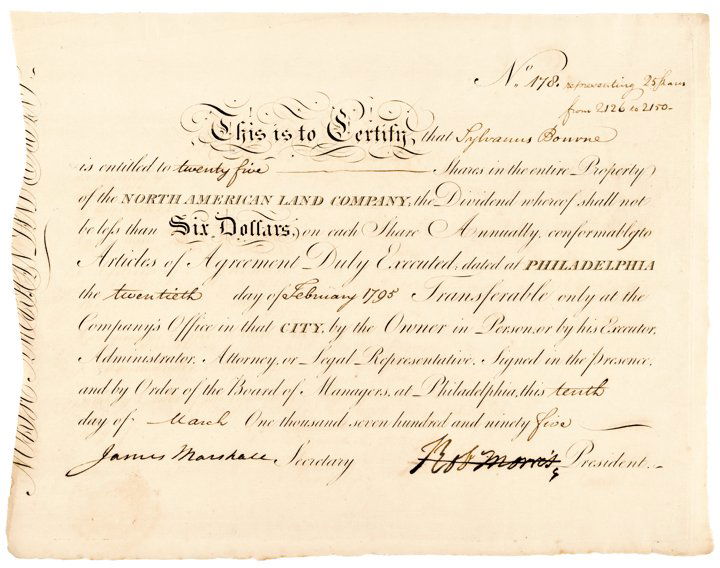 No. 178. representing 25 shares
from 2126 to 2150-
This is to Certify, that Sylvanus Bourne
is entitled to twenty five Shares in the entire Property
of the NORTH AMERICAN LAND COMPANY, the Dividend whereof shall not
be leſs than Six Dollars, on each Share Annually, conformably to
Articles of Agreement Duly Executed, dated at PHILADELPHIA
the twentieth day of February 1795 Transferable only at the
Company's Office in that CITY, by the Owner in Person, or by his Executor,
Administrator, Attorney, or Legal Representative. Signed in the presence,
and by Order of the Board of Managers, at Philadelphia, this tenth
day of March One thousand seven hundred and ninety five
James Marshall Secretary Rob Morris, President.
NORTH AMERICAN LAND